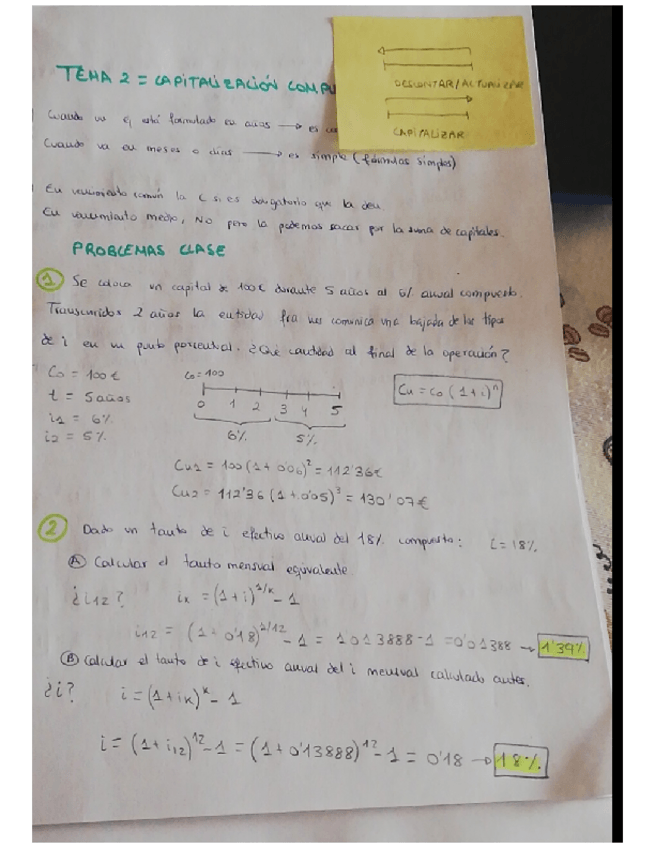 TEMA 2 = CAPITALIZACIÓN COMPU
DESCONTAR/ACTUALIZAR
CAPITALIZAR
Cuando un ej está formulado en años → es
Cuando va en meses o días → es simple (fórmulas simples)
En vencimiento común la C si es obligatorio que la den
En vencimiento medio, NO pero la podemos sacar por la suma de capitales.
PROBLEMAS CLASE
1 Se coloca un capital de 100€ durante 5 años al 6% anual compuesto.
Transcurridos 2 años la entidad fra nos comunica una bajada de los tipos
de i en un punto porcentual. ¿Qué cantidad al final de la operación?
C0 = 100€
t = 5 años
i1 = 6%
i2 = 5%
C0 = 100
0 1 2 3 4 5
6% 5%
Cn = C0 (1+i)^n
Cn1 = 100(1+0'06)^2 = 112'36€
Cn2 = 112'36 (1+0'05)^3 = 130'07€
2 Dado un tanto de i efectivo anual del 18% compuesto: i = 18%
A Calcular el tanto mensual equivalente.
¿i12? ik = (1+i)^1/k - 1
i12 = (1+0'18)^1/12 - 1 = 1013888-1 = 0'01388 → 1'39%
B Calcular el tanto de i efectivo anual del i mensual calculado antes.
¿i? i = (1+ik)^k - 1
i = (1+i12)^12 - 1 = (1+0'13888)^12 - 1 = 0'18 → 18%